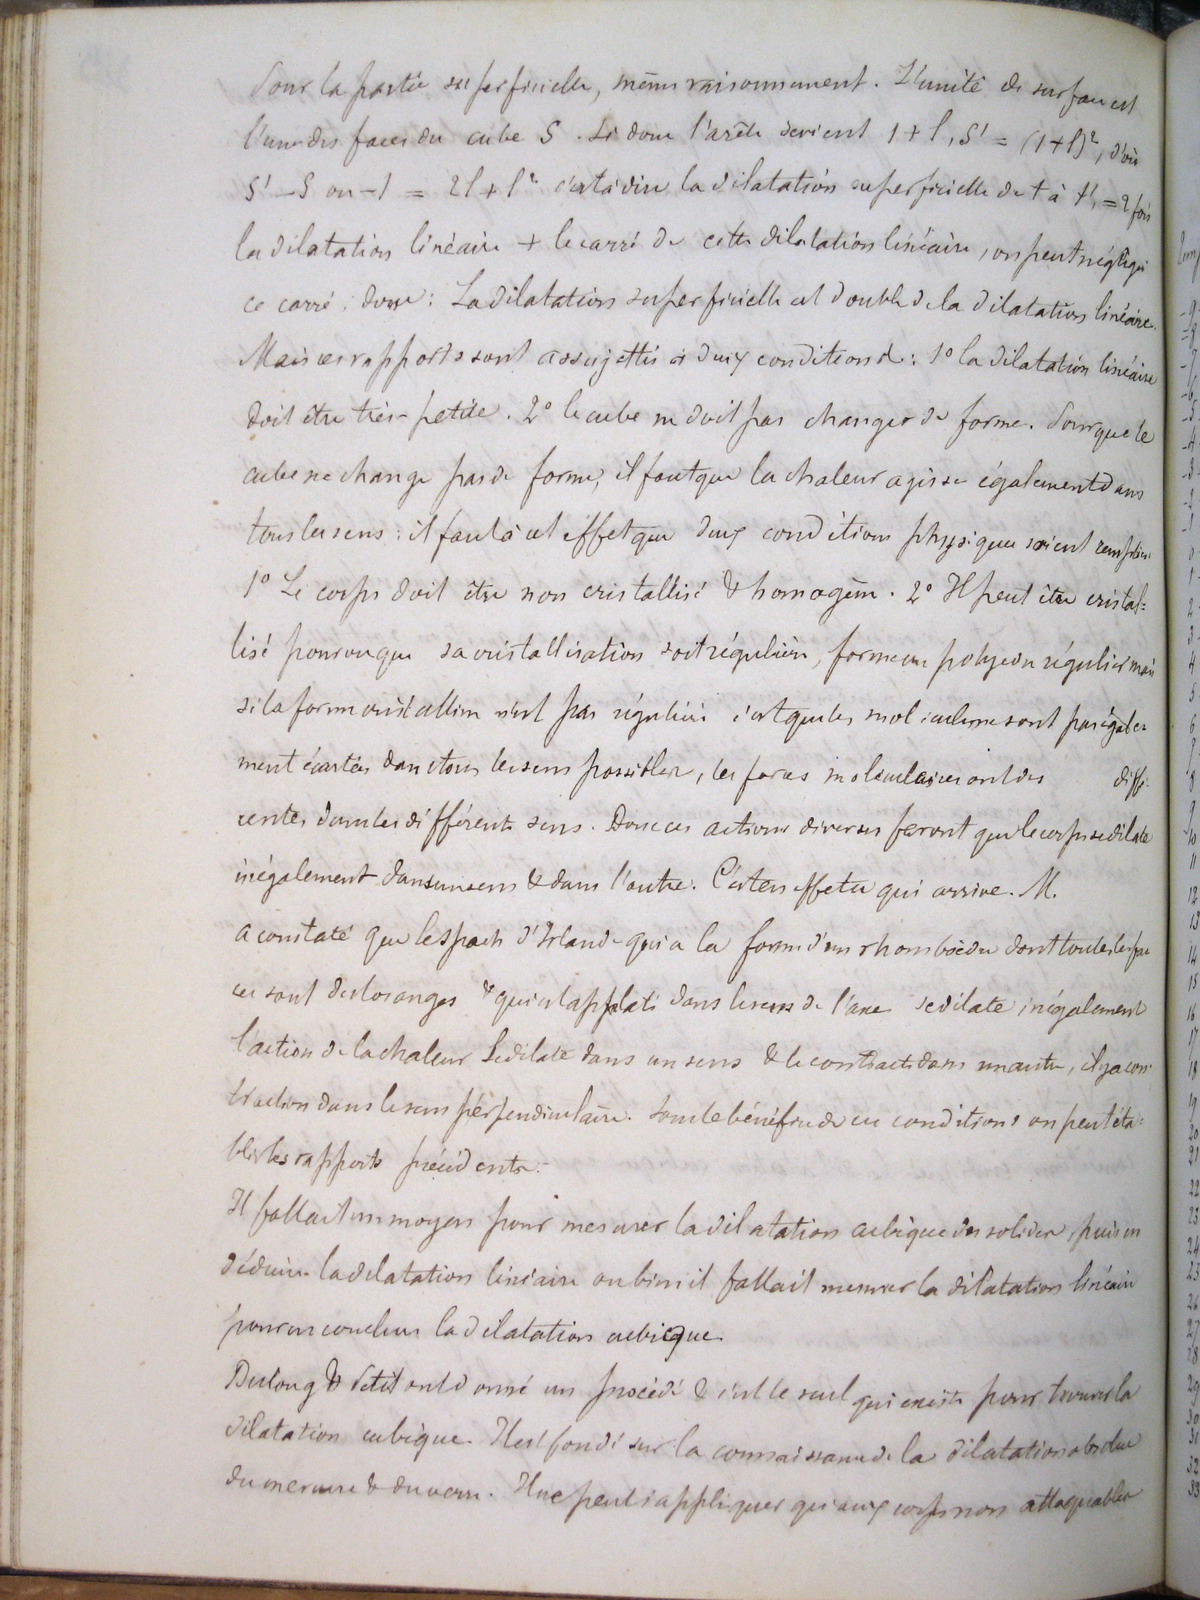 Pour la partie superficielle, même raisonnement. L'unité de surface est
l'une des faces du cube S. Si donc l'arête devient 1+l, S' = (1+l)², d'où
S' - S ou -1 = 2l + l² c'est à dire la dilatation superficielle de t à t', = 2 fois
la dilatation linéaire + le carré de cette dilatation linéaire, on peut négliger
ce carré, donc : La dilatation superficielle est double de la dilatation linéaire.
Mais ces rapports sont assujettis à deux conditions : 1° la dilatation linéaire
doit être très-petite. 2° le cube ne doit pas changer de forme. Pour que le
cube ne change pas de forme, il faut que la chaleur agisse également dans
tous les sens : il faut à cet effet que deux conditions physiques soient remplies
1° Le corps doit être non cristallisé & homogène. 2° Il peut être cristal=
lisé pourvu que sa cristallisation soit régulière, forme un polyèdre régulier mais
si la forme cristalline n'est pas régulière c'est que les molécules ne sont pas égale=
ment écartées dans tous les sens possibles, les forces moléculaires sont des diffé-
rentes dans les différents sens. Donc ces actions diverses feront que le corps se dilate
inégalement dans un sens & dans l'autre. C'est en effet ce qui arrive. M.
a constaté que le spath d'Irlande qui a la forme d'un rhomboèdre dont toutes les fa
ces sont des losanges & qui est applati dans le sens de l'axe se dilate inégalement
l'action de la chaleur le dilate dans un sens & le contracte dans un autre, il y a con
traction dans le sens perpendiculaire. Sous le bénéfice de ces conditions on peut éta=
blir les rapports précédents.-
Il fallait un moyen pour mesurer la dilatation cubique des solides, puis en
déduire la dilatation linéaire ou bien il fallait mesurer la dilatation linéaire
pour en conclure la dilatation cubique.
Dulong & Petit ont donné un procédé & c'est le seul qui existe pour trouver la
dilatation cubique. Il est fondé sur la connaissance de la dilatation absolue
du mercure & du verre. Il ne peut s'appliquer qu'aux corps non attaquables